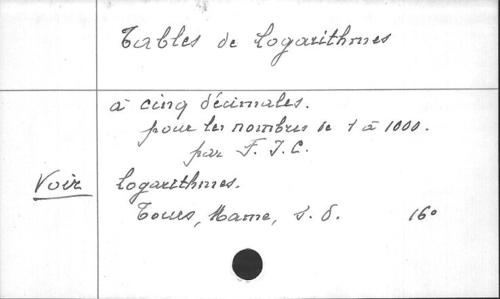 Tables de logarithmes
à cinq décimales.
pour les nombres de 1 à 1000.
par F. J. C.
Voir logarithmes.
Tours, Mame, s. d. 16°